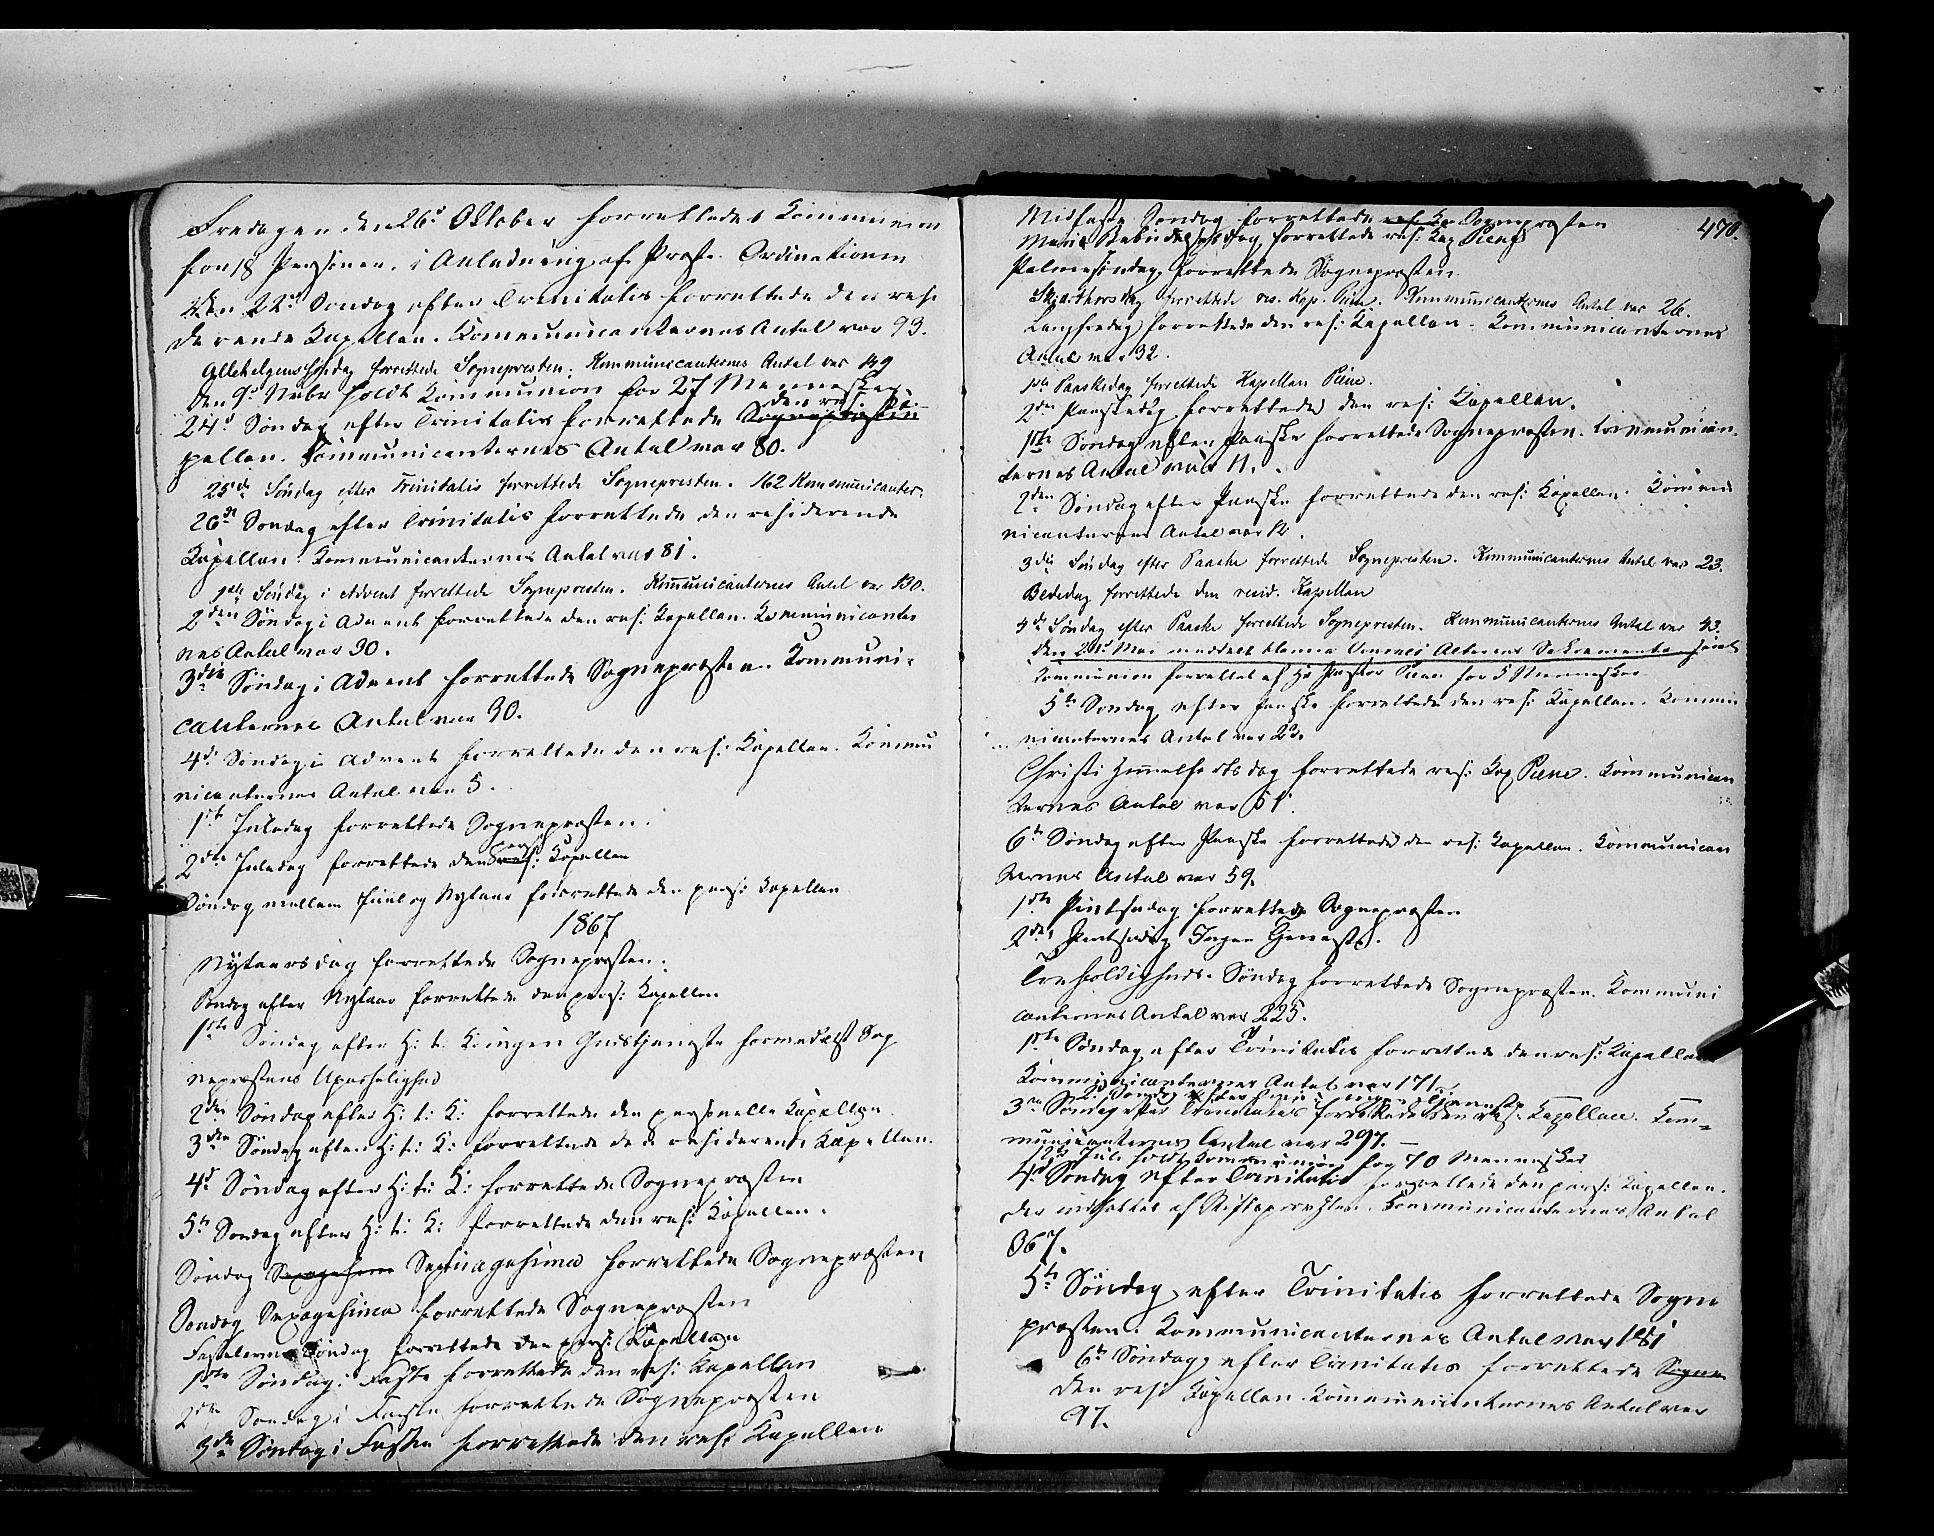 Fredagen den 26d Oktober forrettedes Kommunion
for 18 Personer, i Anledning af Præste Ordinationen
den 22d Søndag efter Trinitatis forrettede den resi
derende Kapellan. Communicanternes Antal var 93.
Allehelgens Søndag forrettede Sognepresten. Kommunicanternes Antal var 149
Den 9d Novbr holdt Communion for 27 Mennesker.
den res. Ka-
24d Søndag efter Trinitatis forrettede Sognepræsten
pellan. Communicanternes Antal var 80.
25de Søndag efter Trinitatis forrettede Sognepresten. 162 Kommunicanter.
26de Søndag efter Trinitatis forrettede den residerende
Kapellan. Kommunicanternes Antal var 81.
1ste Søndag i Advent forrettede Sognepresten. Kommunicanternes Antal var 130.
2den Søndag i Advent forrettede den res: Kapellan. Kommunicanter
nes Antal var 30.
3die Søndag i Advent forrettede Sognepræsten. Kommuni-
canternes Antal var 30.
4d Søndag i Advent forrettede den res: Kapellan. Kommu
nicanternes Antal var 5.
1ste Juledag forrettede Sognepræsten.
2den Juledag forrettede den pers: Kapellan
Søndag mellem Juul og Nytaar forrettede den pers: Kapellan
1867
Nytaarsdag forrettede Sognepræsten.
Søndag efter Nytaar forrettede den pers: Kapellan
1ste Søndag efter H: t: K: ingen Gudstjeneste formedelst Sog
nepræstens Upasselighed
2den Søndag efter H: t: K: forrettede den personelle Kapellan
3die Søndag efter H: t: K: forrettede den residerende Kapellan.
4d Søndag efter H: t: K: forrettede Sognepræsten
5te Søndag efter H: t: K: forrettede den res: Kapellan.
Søndag Sexagesima Septuagesima forrettede Sognepræsten
Søndag Sexagesima forrettede Sognepræsten
Fastelavns Søndag forrettede den pers: Kapellan
1ste Søndag i Faste forrettede den res: Kapellan
2den Søndag i Faste forrettede Sognepræsten
3die Søndag i Fasten forrettede den res: Kapellan
470.
Midfaste Søndag forrettede res: Ka Sognepræsten
Mariæ Bebudelsesdag forrettede res: Kap Piene
Palmesøndag forrettede Sognepræsten.
Skjærthorsdag forrettede res. Kap. Piene. Kommunicanternes Antal var 26.
Langfredag forrettede den res: Kapellan. Kommunicanternes
Antal var 32.
1ste Paaskedag forrettede Kapellan Piene.
2den Paaskedag forrettede den res: Kapellan.
1ste Søndag efter Paaske forrettede Sognepræsten. Communican-
ternes Antal var 11.
2den Søndag efter Paaske forrettede den res: Kapellan. Commu
nicanternes Antal var 12.
3die Søndag efter Paaske forrettede Sognepresten. Kommunicanternes Antal var 23.
Bededag forrettede den resid. Kapellan
4de Søndag efter Paaske forrettede Sognepresten. Kommunicanternes Antal var 43.
Den 21d Mai meddelt Alterens Sakramente samt
Kommunion forrettet af Hr Pastor Piene for 5 Mennesker
5te Søndag efter Paaske forrettede den res: Kapellan. Kommu
nicanternes Antal var 22.
Christi Himmelfartsdag forrettede res: Kap Piene. Kommunican
ternes Antal var 51.
6te Søndag efter Paaske forrettede den res: Kapellan. Kommunican
ternes Antal var 59.
1ste Pintsedag forrettede Sognepræsten
2den Pintsedag Ingen Tjeneste.
Trefoldigheds-Søndag forrettede Sognepræsten. Kommuni
canternes Antal var 225.
1ste Søndag efter Trinitatis forrettede den res: Kapellan
Kommunicanternes Antal var 171.
2d Søndag efter Trin: ingen Tjeneste
3die Søndag efter Trinitatis forrettede den res. Kapellan. Com-
municanternes Antal var 297.
12te Juli holdt Kommunion for 70 Mennesker
4d Søndag efter Trinitatis forrettede den pers: Kapellan.
der indsattes af Stiftsprovsten. Communicanternes Antal
367.
5te Søndag efter Trinitatis forrettede Sogne
præsten. Kommunicanternes Antal var 181
6te Søndag efter Trinitatis forrettede Sogne
den res: Kapellan. Kommunicanternes Antal var
97.